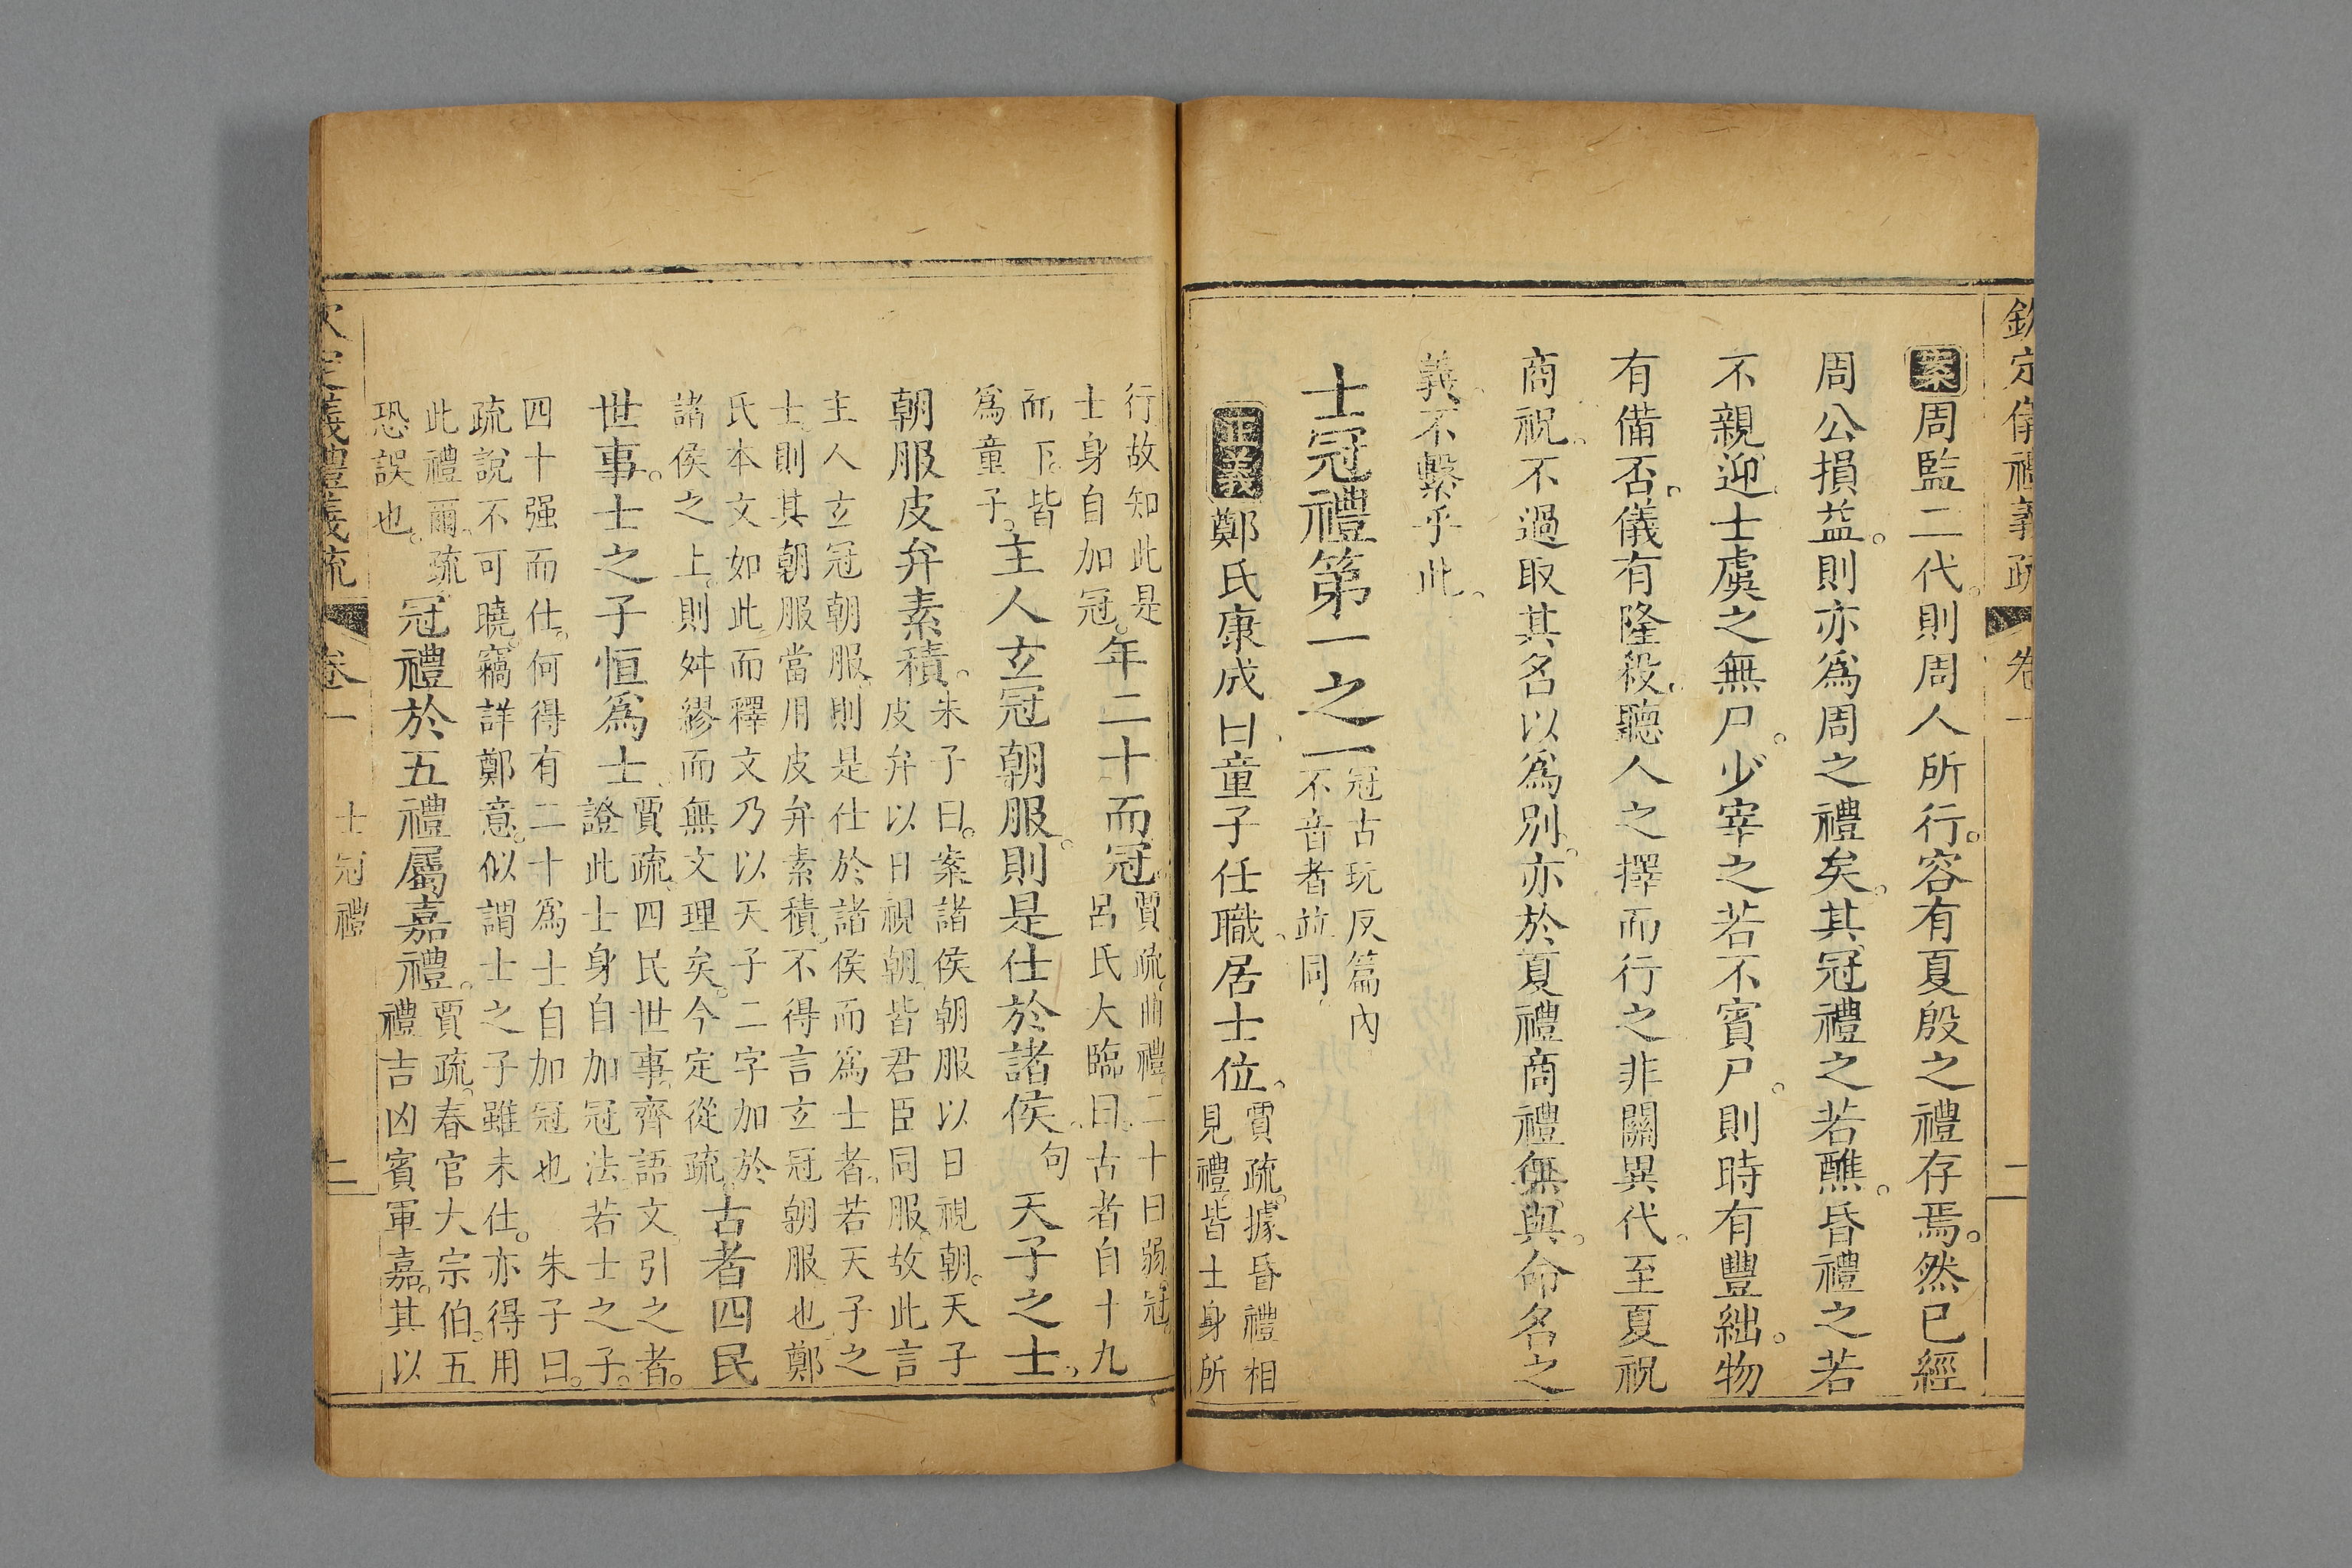 欽定儀禮義疏 卷一 二
案周監二代。則周人所行。容有夏殷之禮存焉。然已經
周公損益。則亦爲周之禮矣。其冠禮之若醮。昏禮之若
不親迎。士虞之無尸。少宰之若不賓尸。則時有豐絀。物
有備否。儀有隆殺。聽人之擇而行之。非關異代。至夏祝
商祝。不過取其名以爲別。亦於夏禮商禮無與。命名之
義不繫乎此。
士冠禮第一之一冠古玩反篇內
不音者竝同
正義鄭氏康成曰童子任職。居士位。賈疏。據昏禮相
見禮。皆士身所
行故知此是
士身自加冠。年二十而冠。賈疏。曲禮。二十曰弱冠。
呂氏大臨曰。古者自十九
而下。皆
爲童子。主人玄冠朝服。則是仕於諸侯。句 天子之士。
朝服皮弁素積。朱子曰。案諸侯朝服以日視朝。天子
皮弁以日視朝。皆君臣同服。故此言
主人玄冠朝服。則是仕於諸侯而爲士者。若天子之
士則其朝服當用皮弁素積。不得言玄冠朝服也。鄭
氏本文如此。而釋文乃以天子二字加於
諸侯之上。則舛繆而無文理矣。今定從疏。古者四民
世事。士之子恒爲士。賈疏。四民世事。齊語文。引之者。
證此士身自加冠法。若士之子。
四十强而仕。何得有二十爲士自加冠也 朱子曰。
疏說不可曉。竊詳鄭意。似謂士之子雖未仕。亦得用
此禮爾。疏
恐誤也。冠禮於五禮屬嘉禮。賈疏。春官大宗伯。五
禮吉凶賓軍嘉。其以
欽定儀禮義疏 卷一 士冠禮 二